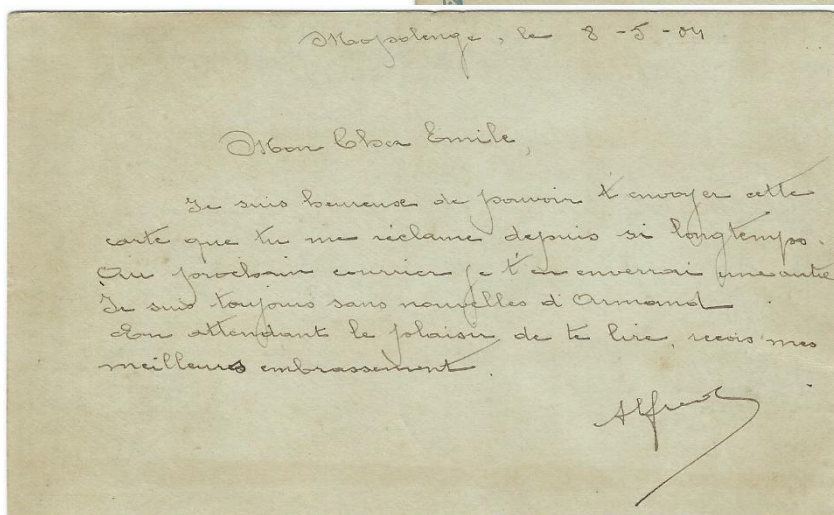 Mapolenge, le 8-5-04
Mon Cher Emile,
Je suis heureuse de pouvoir t'envoyer cette
carte que tu me réclame depuis si longtemps.
Au prochain courrier je t'en enverrai une autre
Je suis toujours sans nouvelles d'Armand.
En attendant le plaisir de te lire, reçois mes
meilleurs embrassement.
Alfred